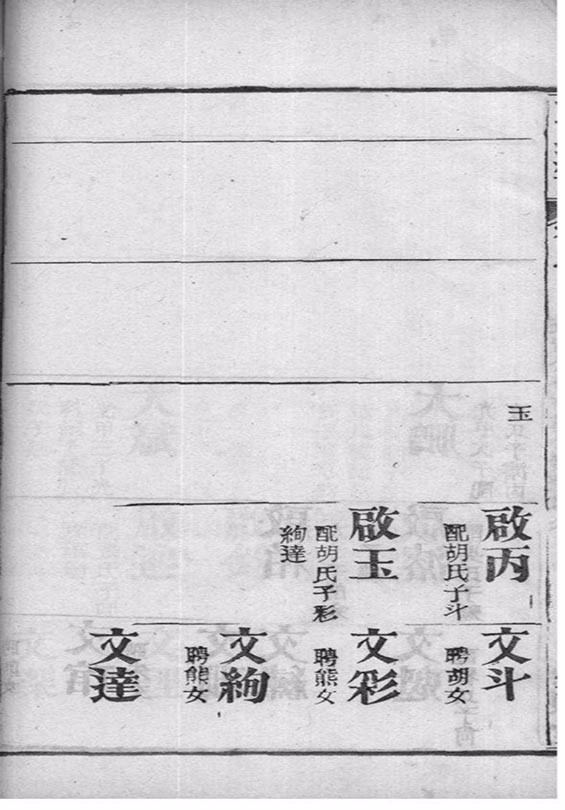 玉
啟丙
配胡氏子斗
啟玉
配胡氏子彩
絢達
文斗
聘胡女
文彩
聘熊女
文絢
聘熊女
文達